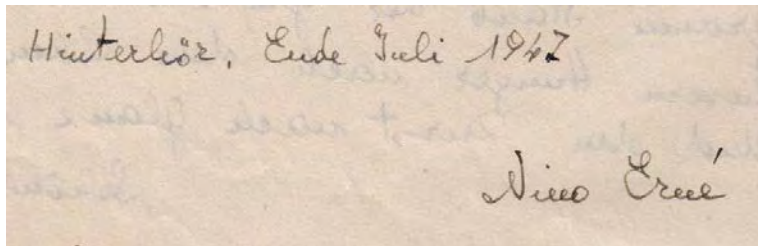 Hinterhör, Ende Juli 1947
Nino Erné